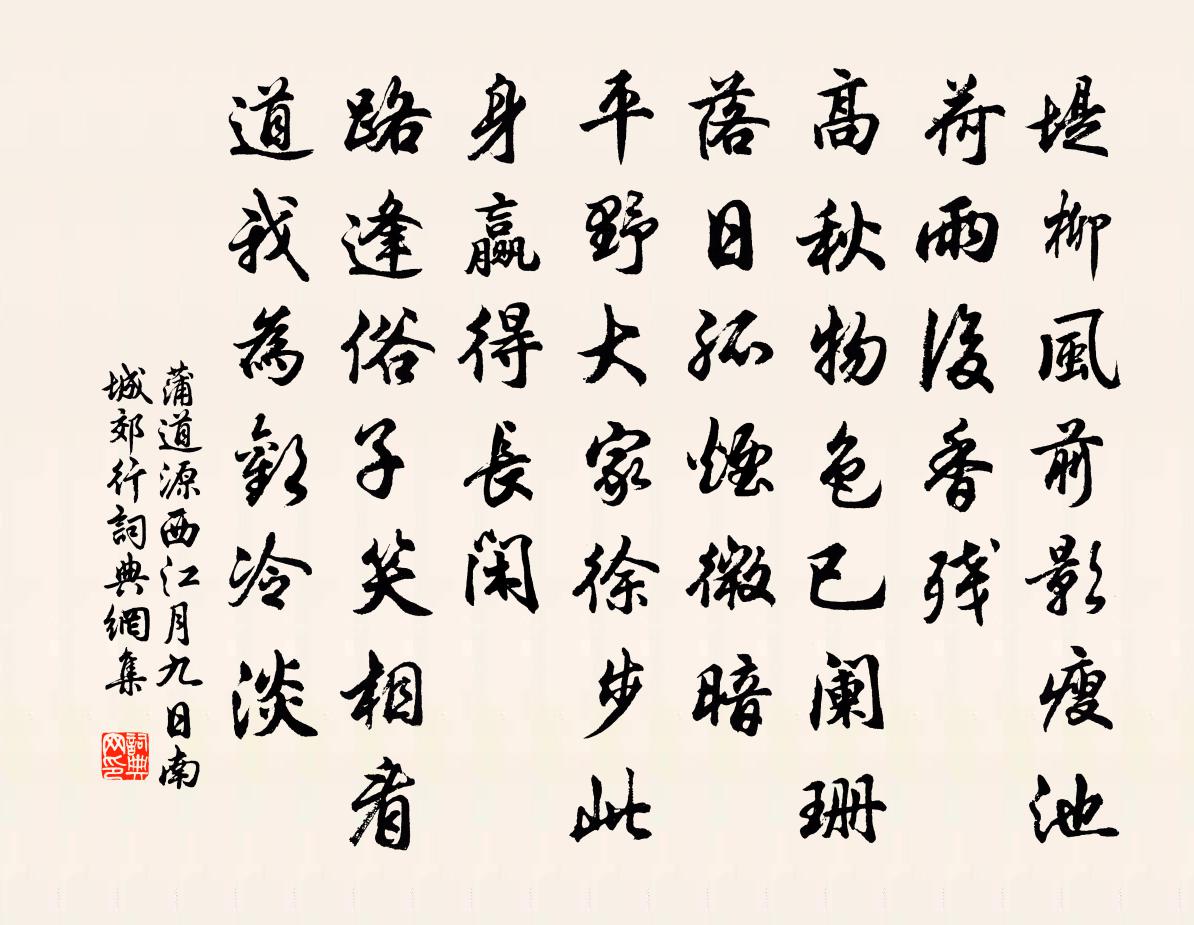 堤柳風前影瘦池
荷雨後香殘
高秋物色已闌珊
落日孤煙微暗
平野大家徐步此
身贏得長閑
路逢俗子笑相看
道我為歡冷淡
蒲道源西江月九日南
城郊行詞典網集
詞典
网印